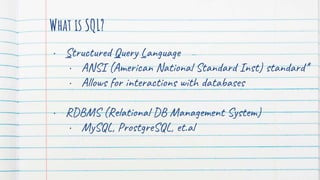 What is SQL?
• Structured Query Language
• ANSI (American National Standard Inst) standard*
• Allows for interactions with databases
• RDBMS (Relational DB Management System)
• MySQL, ProstgreSQL, et.al